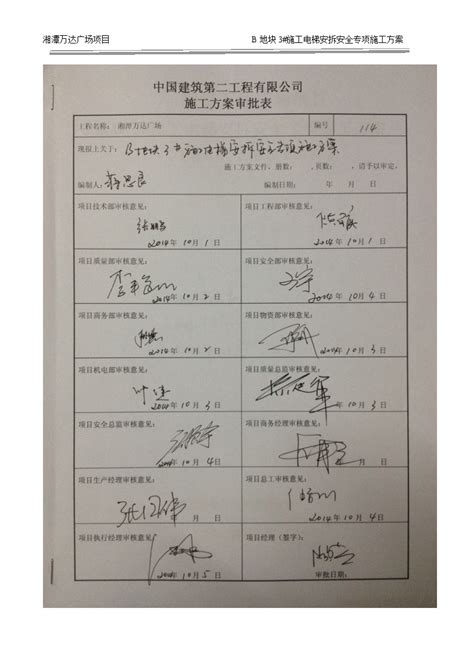 湘潭万达广场项目 B 地块 3#施工电梯安拆安全专项施工方案
中国建筑第二工程有限公司
施工方案审批表
工程名称：湘潭万达广场 编号 114
现报上关于：B地块3#施工电梯安拆安全专项施工方案
施工方案文件，册数： ，页数： ，请予以审定。
编制人： 编制日期： 年 月 日
项目技术部审核意见： 项目工程部审核意见：
2014年10月1日 2014年10月1日
项目质量部审核意见： 项目安全部审核意见：
2014年10月2日 2014年10月4日
项目商务部审核意见： 项目物资部审核意见：
2014年10月2日 年 月 日
项目机电部审核意见： 项目质量总监审核意见：
2014年10月3日 年 月 日
项目安全总监审核意见： 项目商务经理审核意见：
年10月4日 年 月 日
项目生产经理审核意见： 项目总工审核意见：
月 日 2014年10月4日
项目执行经理审核意见： 项目经理（签字）：
2014年10月5日 审批日期：